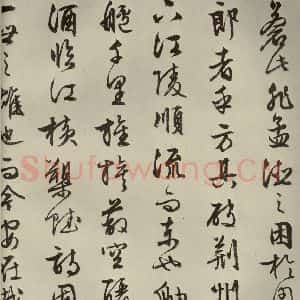 蒼此非孟德之困於周
郎者乎方其破荊州
下江陵順流而東也舳
艫千里旌旗蔽空釃
酒臨江橫槊賦詩固
一世之雄也而今安在哉
Shufawang.CN